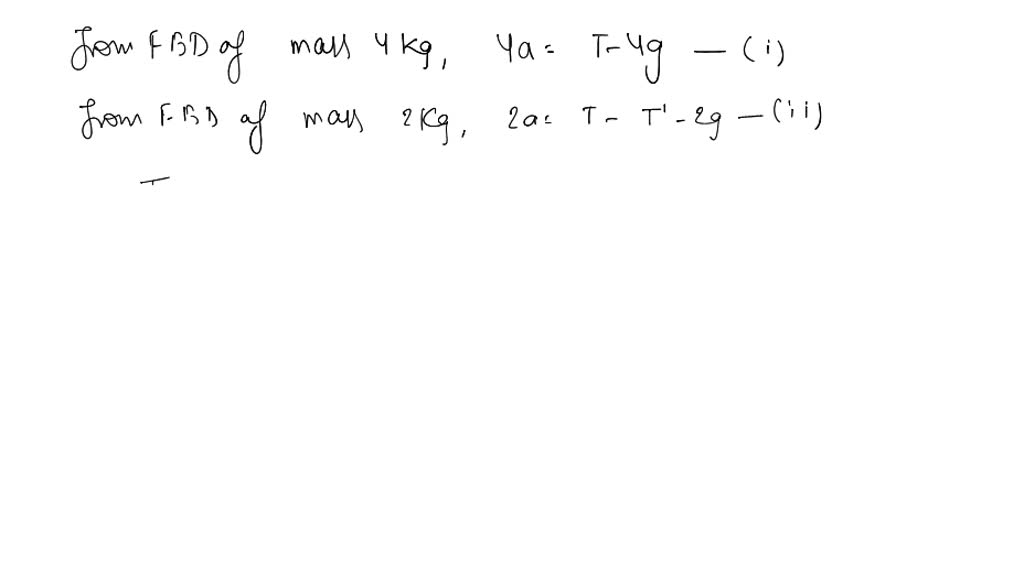 from FBD of mass 4 kg, 4a = T-4g — (i)
from FBD of mass 2 Kg, 2a = T - T' - 2g — (ii)